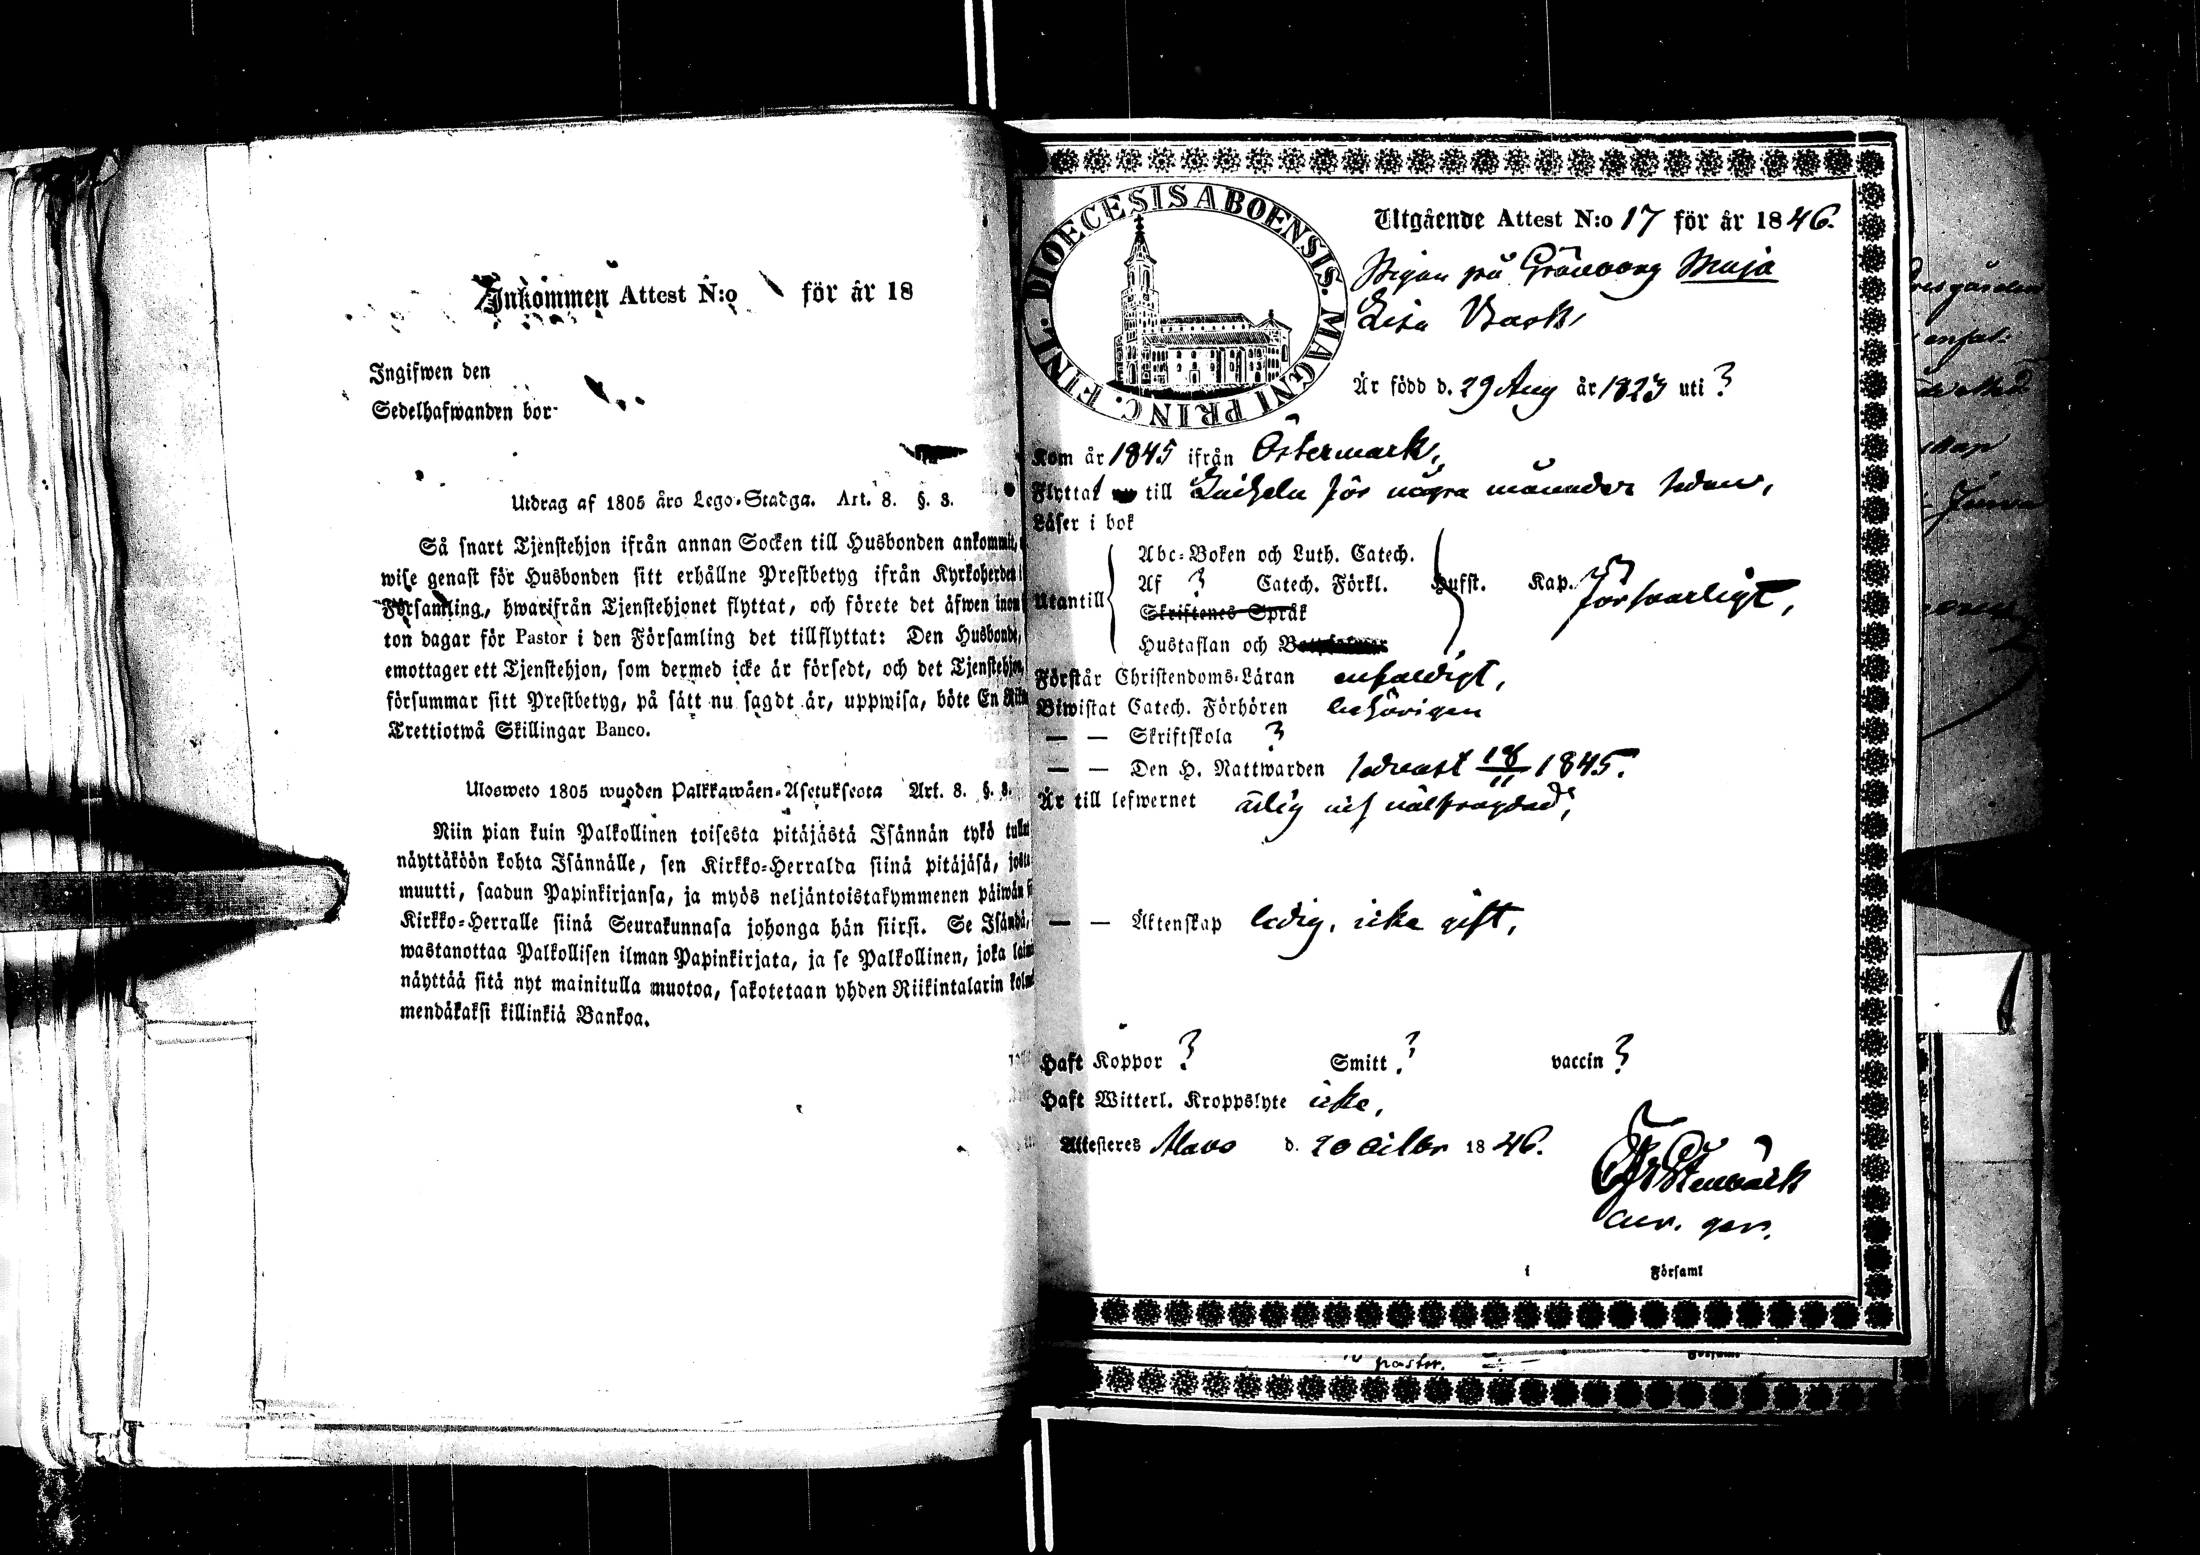 Inkommen Attest N:o för år 18
Ingifwen den
Sedelhafwanden bor
Utdrag af 1805 års Lego-Stadga. Art. 8. §. 3.
Så snart Tjenstehjon ifrån annan Socken till Husbonden ankommit,
wise genast för Husbonden sitt erhållne Prestbetyg ifrån Kyrkoherden i
Församling, hwarifrån Tjenstehjonet flyttat, och förete det äfwen inom
ton dagar för Pastor i den Församling det tillflyttat: Den Husbonde,
emottager ett Tjenstehjon, som dermed icke är försedt, och det Tjenstehjon,
försummar sitt Prestbetyg, på sätt nu sagdt är, uppwisa, böte En
Trettiotwå Skillingar Banco.
Ulosweto 1805 wuoden Palkkawäen-Asetuksesta Art. 8. §. 3.
Niin pian kuin Palkollinen toisesta pitäjästä Isännän tykö
näyttäköön kohta Isännälle, sen Kirkko-Herralda siinä pitäjäsä,
muutti, saadun Papinkirjansa, ja myös neljäntoistakymmenen päiwän
Kirkko-Herralle siinä Seurakunnasa johonga hän siirsi. Se Isändä,
wastanottaa Palkollisen ilman Papinkirjata, ja se Palkollinen, joka
näyttää sitä nyt mainitulla muotoa, sakotetaan yhden Riikintalarin
mendäkaksi killinkiä Bankoa.
DIOECESIS ABOENSIS. MAGNI PRINC. FINL.
Utgående Attest N:o 17 för år 1846.
Pigan på Maja
Lisa
Är född d. 29 Aug år 1823 uti ?
Kom år 1845 ifrån Östermark,
Flyttat till för några månader sedan,
Läser i bok
Utantill
Abc-Boken och Luth. Catech.
Af ? Catech. Förkl. Hufst. Kap. Försvarligt,
Skriftenes Språk
Hustaflan och
Förstår Christendoms-Läran enfaldigt,
Biwistat Catech. Förhören behörigen
— — Skriftskola ?
— — Den H. Nattwarden sednast 18/11 1845.
Är till lefwernet ärlig och välfrägdad,
— — Äktenskap ledig, icke gift,
Haft Koppor ? Smitt ? vaccin ?
Haft Witterl. Kroppslyte icke,
Attesteres Alavo d. 20 1846.
i Församl
pastor.